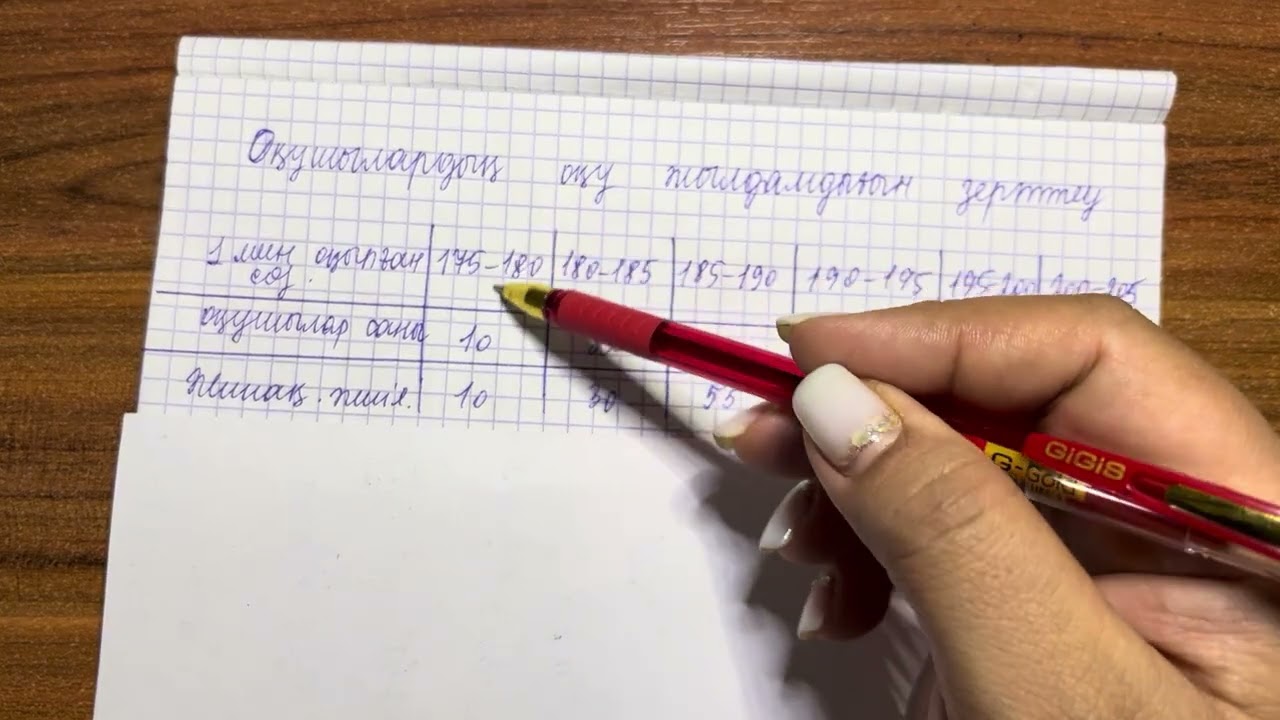 Оқушылардың оқу жылдамдығын зерттеу
1 мин оқылған 175-180 180-185 185-190 190-195 195-200 200-205
сөз.
оқушылар саны 10
Жинақ. жиіл. 10 30 55
GiGiS
G-Gold